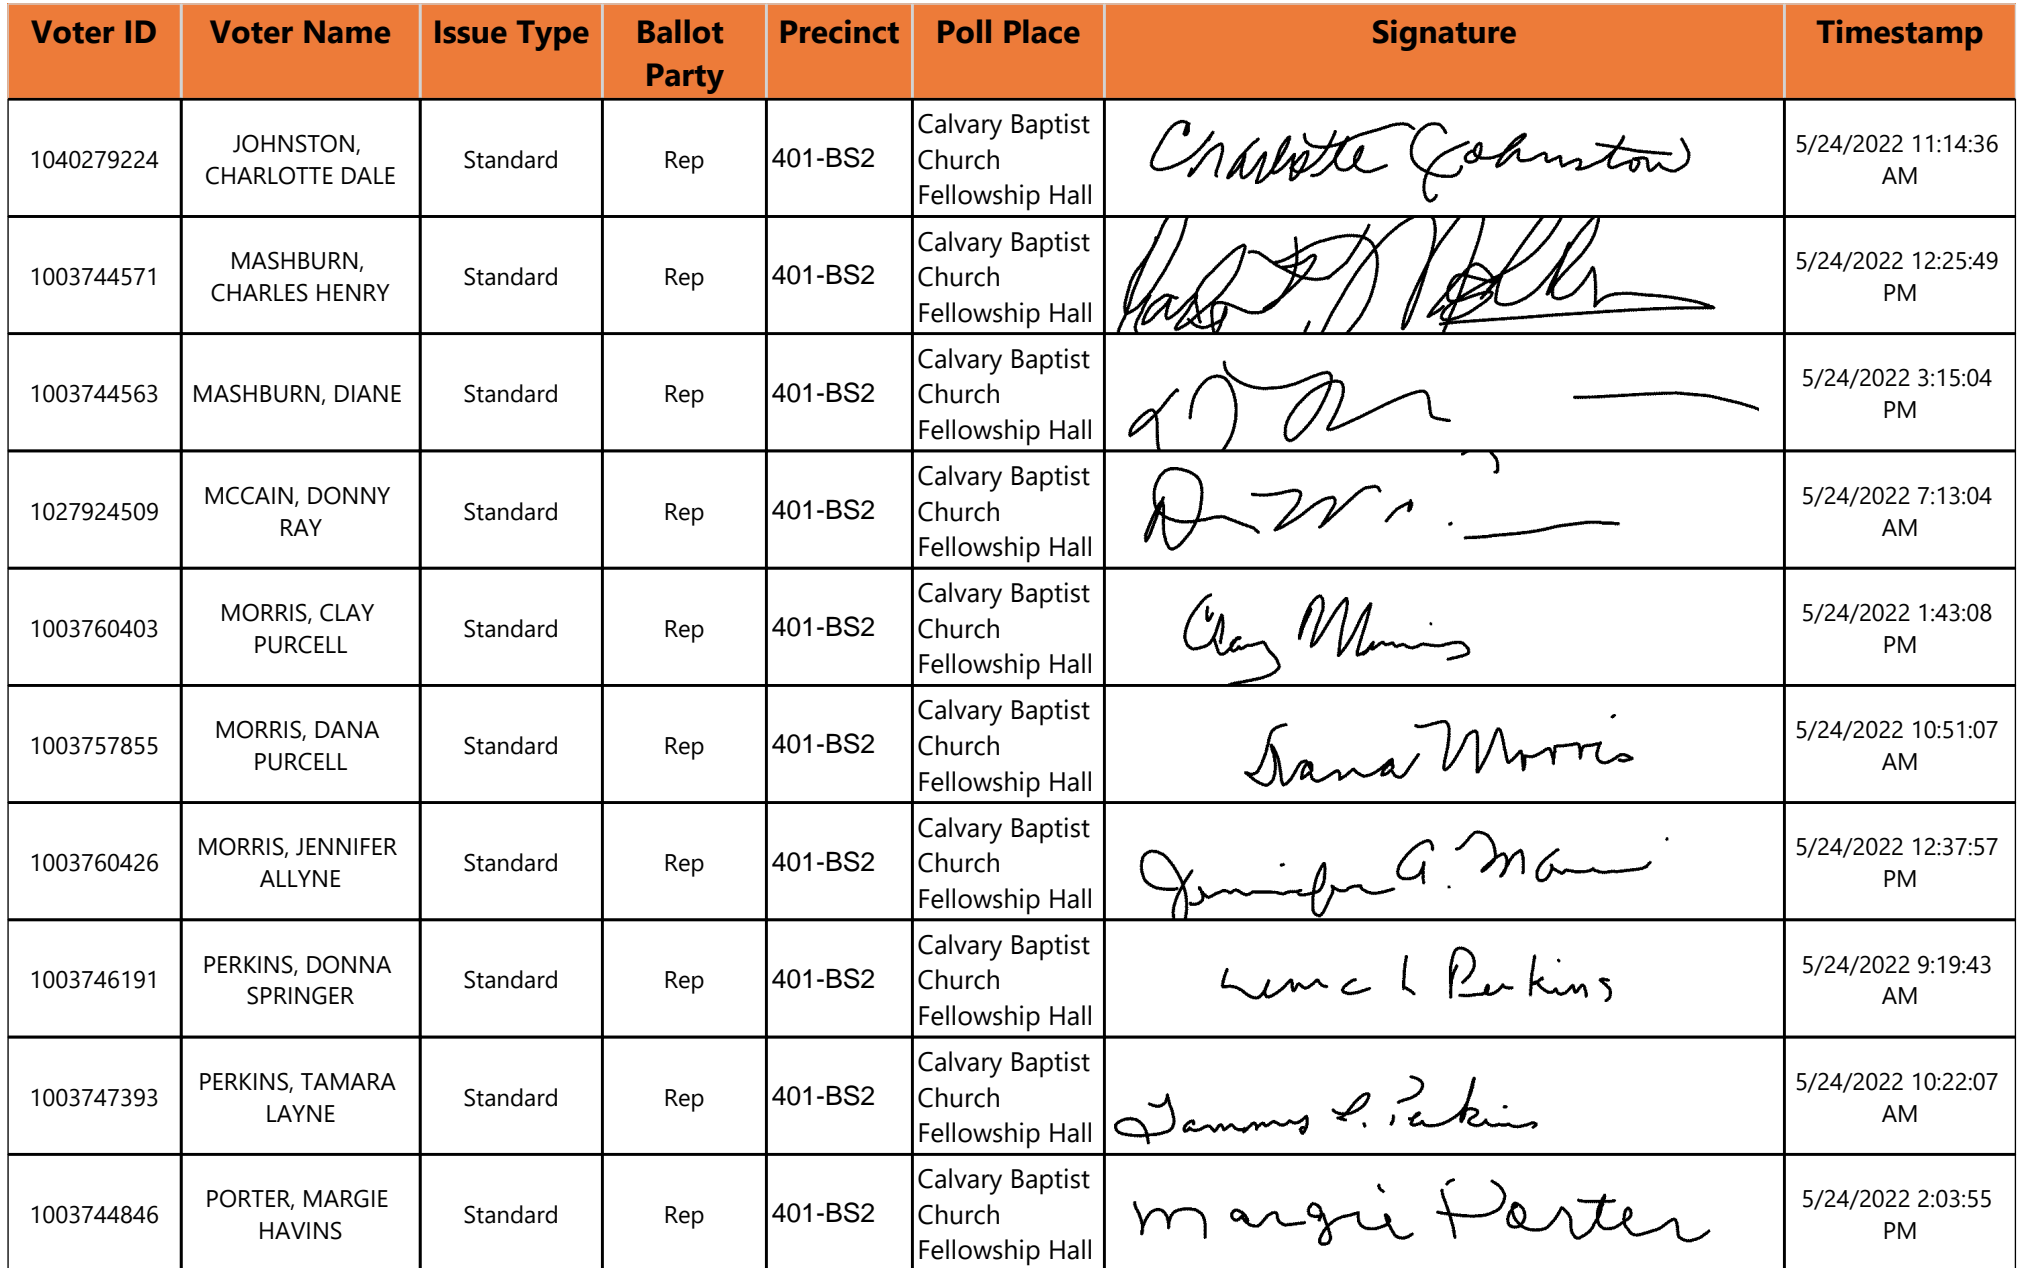 Voter ID Voter Name Issue Type Ballot Party Precinct Poll Place Signature Timestamp
1040279224 JOHNSTON, CHARLOTTE DALE Standard Rep 401-BS2 Calvary Baptist Church Fellowship Hall Charlotte Johnston 5/24/2022 11:14:36 AM
1003744571 MASHBURN, CHARLES HENRY Standard Rep 401-BS2 Calvary Baptist Church Fellowship Hall 5/24/2022 12:25:49 PM
1003744563 MASHBURN, DIANE Standard Rep 401-BS2 Calvary Baptist Church Fellowship Hall 5/24/2022 3:15:04 PM
1027924509 MCCAIN, DONNY RAY Standard Rep 401-BS2 Calvary Baptist Church Fellowship Hall 5/24/2022 7:13:04 AM
1003760403 MORRIS, CLAY PURCELL Standard Rep 401-BS2 Calvary Baptist Church Fellowship Hall Clay Morris 5/24/2022 1:43:08 PM
1003757855 MORRIS, DANA PURCELL Standard Rep 401-BS2 Calvary Baptist Church Fellowship Hall Dana Morris 5/24/2022 10:51:07 AM
1003760426 MORRIS, JENNIFER ALLYNE Standard Rep 401-BS2 Calvary Baptist Church Fellowship Hall Jennifer A. Morris 5/24/2022 12:37:57 PM
1003746191 PERKINS, DONNA SPRINGER Standard Rep 401-BS2 Calvary Baptist Church Fellowship Hall Perkins 5/24/2022 9:19:43 AM
1003747393 PERKINS, TAMARA LAYNE Standard Rep 401-BS2 Calvary Baptist Church Fellowship Hall Tammy L. Perkins 5/24/2022 10:22:07 AM
1003744846 PORTER, MARGIE HAVINS Standard Rep 401-BS2 Calvary Baptist Church Fellowship Hall Margie Porter 5/24/2022 2:03:55 PM